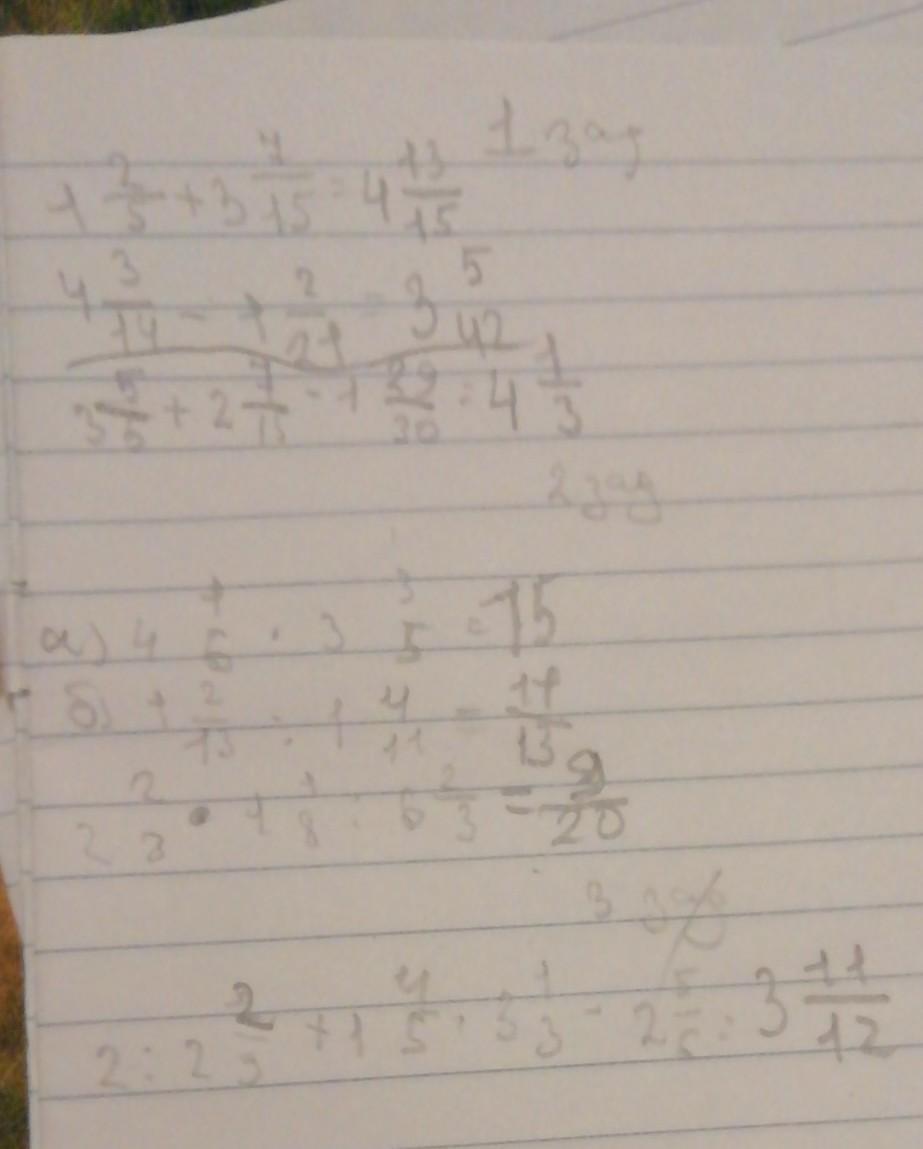 1 зад
1 2/5 + 3 7/15 = 4 13/15
4 3/14 - 1 2/21 = 3 5/42
3 5/6 + 2 1/15 - 1 = 4 1/3
2 зад
а) 4 1/6 · 3 3/5 = 15
б) 1 2/13 : 1 4/11 = 11/13
2 2/3 · 1 1/8 : 6 2/3 = 9/20
3 зад
2 : 2 2/3 + 1 4/5 · 3 1/3 - 2 5/6 = 3 11/12